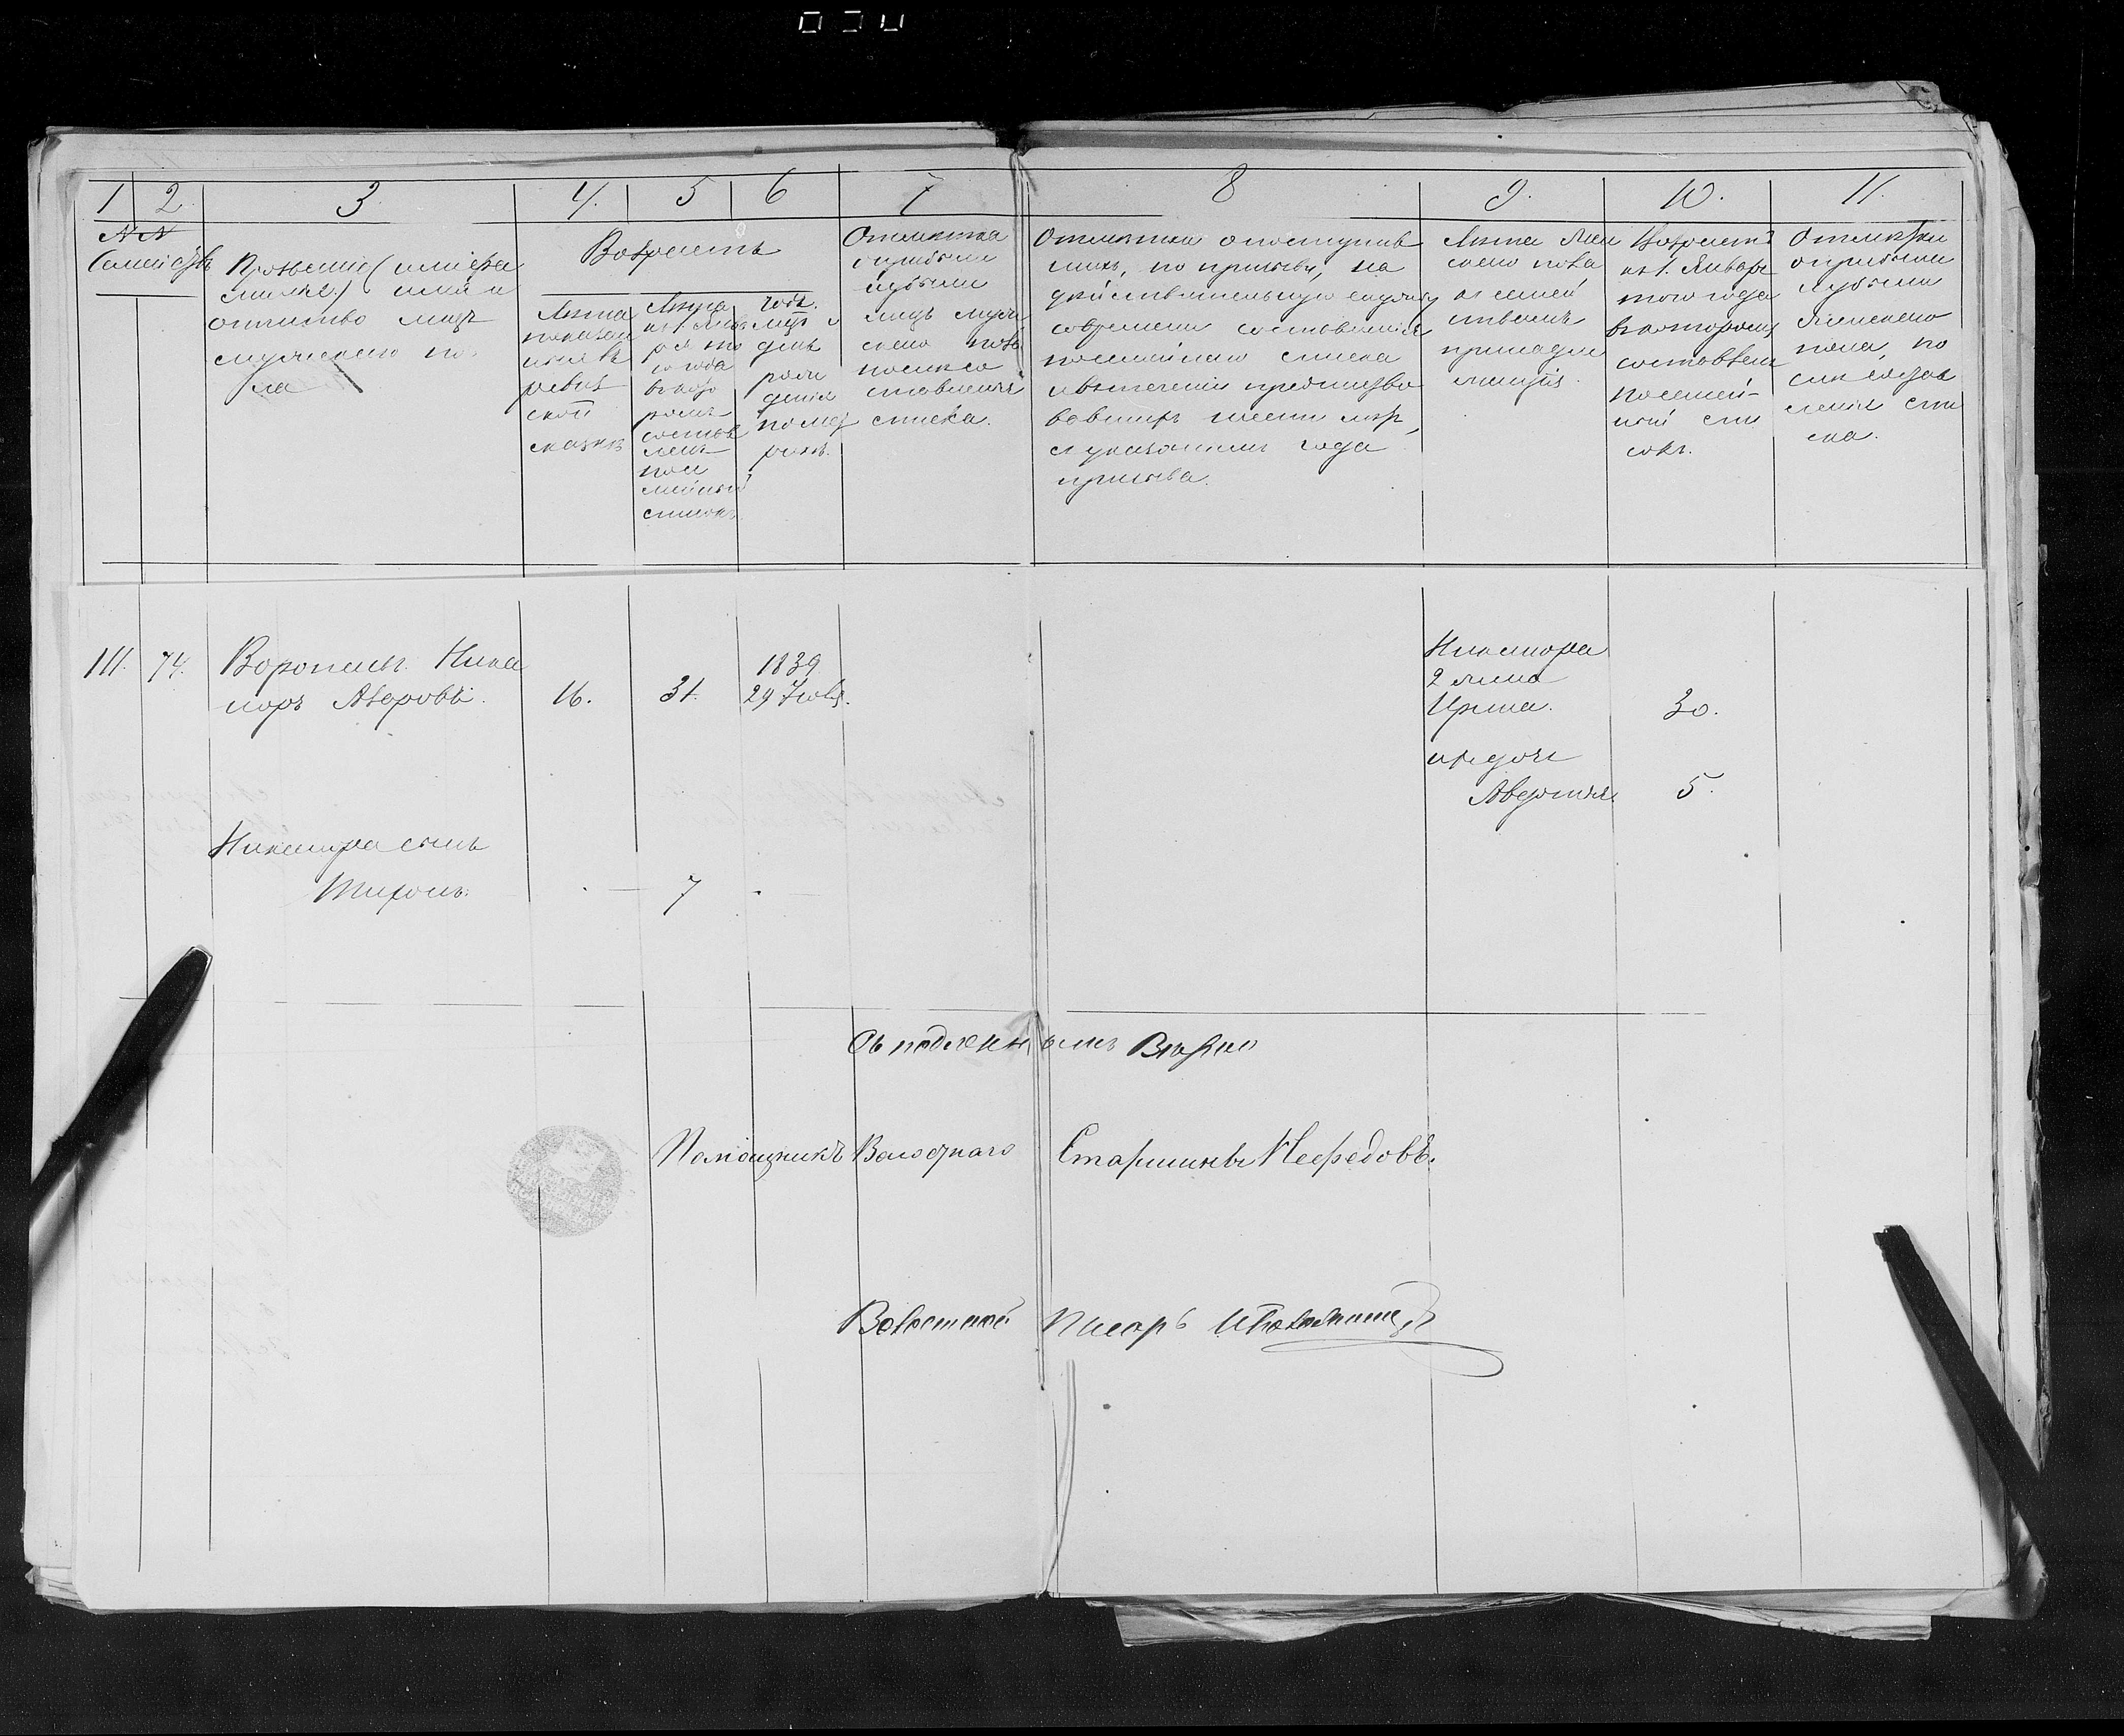 1 2. 3. 4. 5 6 7 8 9. 10. 11.
№№
Семействъ
Прозваніе (или фа
милія) имя и
отчество лицъ
мужескаго по
ла
Возрастъ
Лѣта
показан
ныя въ
ревиз
ской
сказкѣ
Лѣта
къ 1 Янв
ря то
го года
въ кото
ромъ
состав
ленъ
посе
мейный
списокъ
Годъ,
мѣс. и
день
рож
денія
по мет
рикѣ.
Отмѣтка
о прибыли
и убыли
лицъ муже
скаго пола
после со
ставленія
списка.
Отмѣтки о поступив
шихъ, по призыву, на
дѣйствительную службу
со времени составленія
посемейнаго списка
и въ теченіи предшество
вавшихъ шести лѣтъ,
съ указаніемъ года
призыва.
Лица жен
скаго пола
къ семей
ствамъ
принадле
жащія.
Возрастъ
къ 1. Января
того года
въ которомъ
составленъ
посемей-
ный спи
сокъ.
Отмѣтки
о прибыли
и убыли
женскаго
пола, по
составленія спи
ска.
111. 74. Воронинъ Ника
норъ Авдѣевъ 16. 31. 1839
29 Іюля.
Никанора
2 жена
Ирина. 30.
ихъ дочь
Авдотья. 5.
Никанора сынъ
Тихонъ. 7
Съ подлиннымъ Вѣрно
Помощникъ Волостнаго Старшины Нефедовъ.
Волостной Писарь